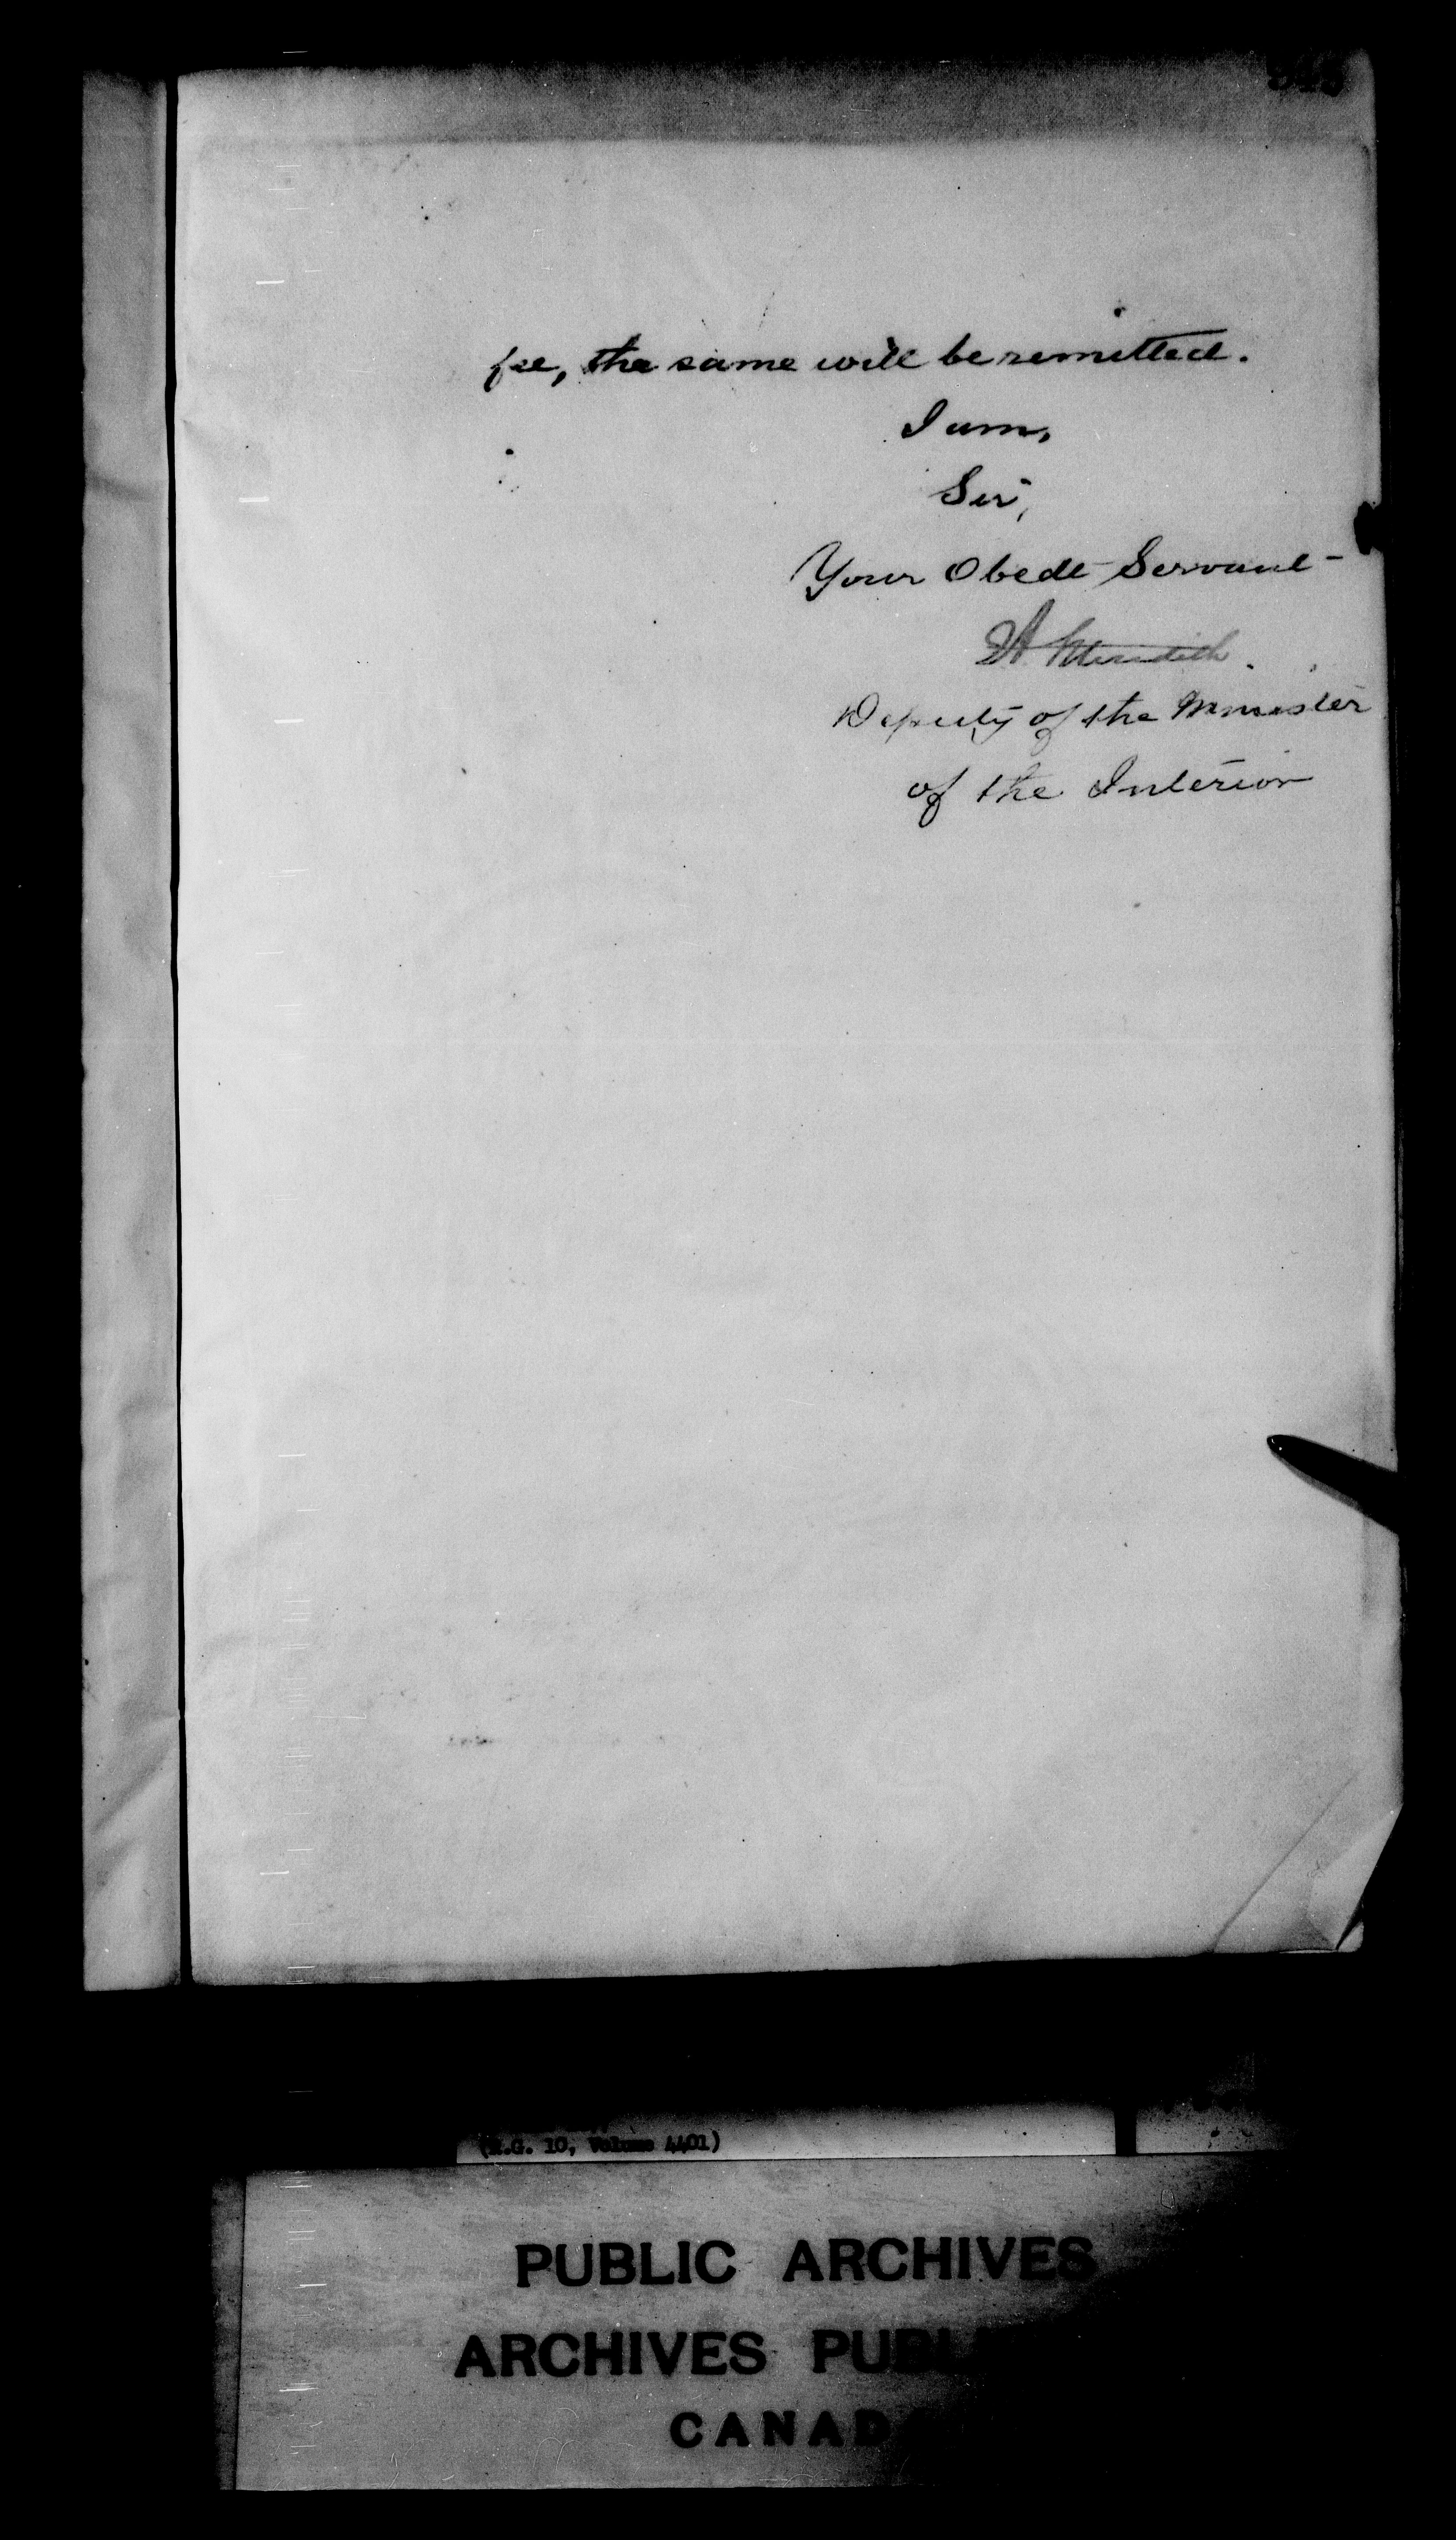 fee, the same will be remitted.
I am,
Sir,
Your Obedt Servant
Meredith
Deputy of the Minister
of the Interior
(R.G. 10, Volume 4401)
PUBLIC ARCHIVES
ARCHIVES PUBLI
CANAD